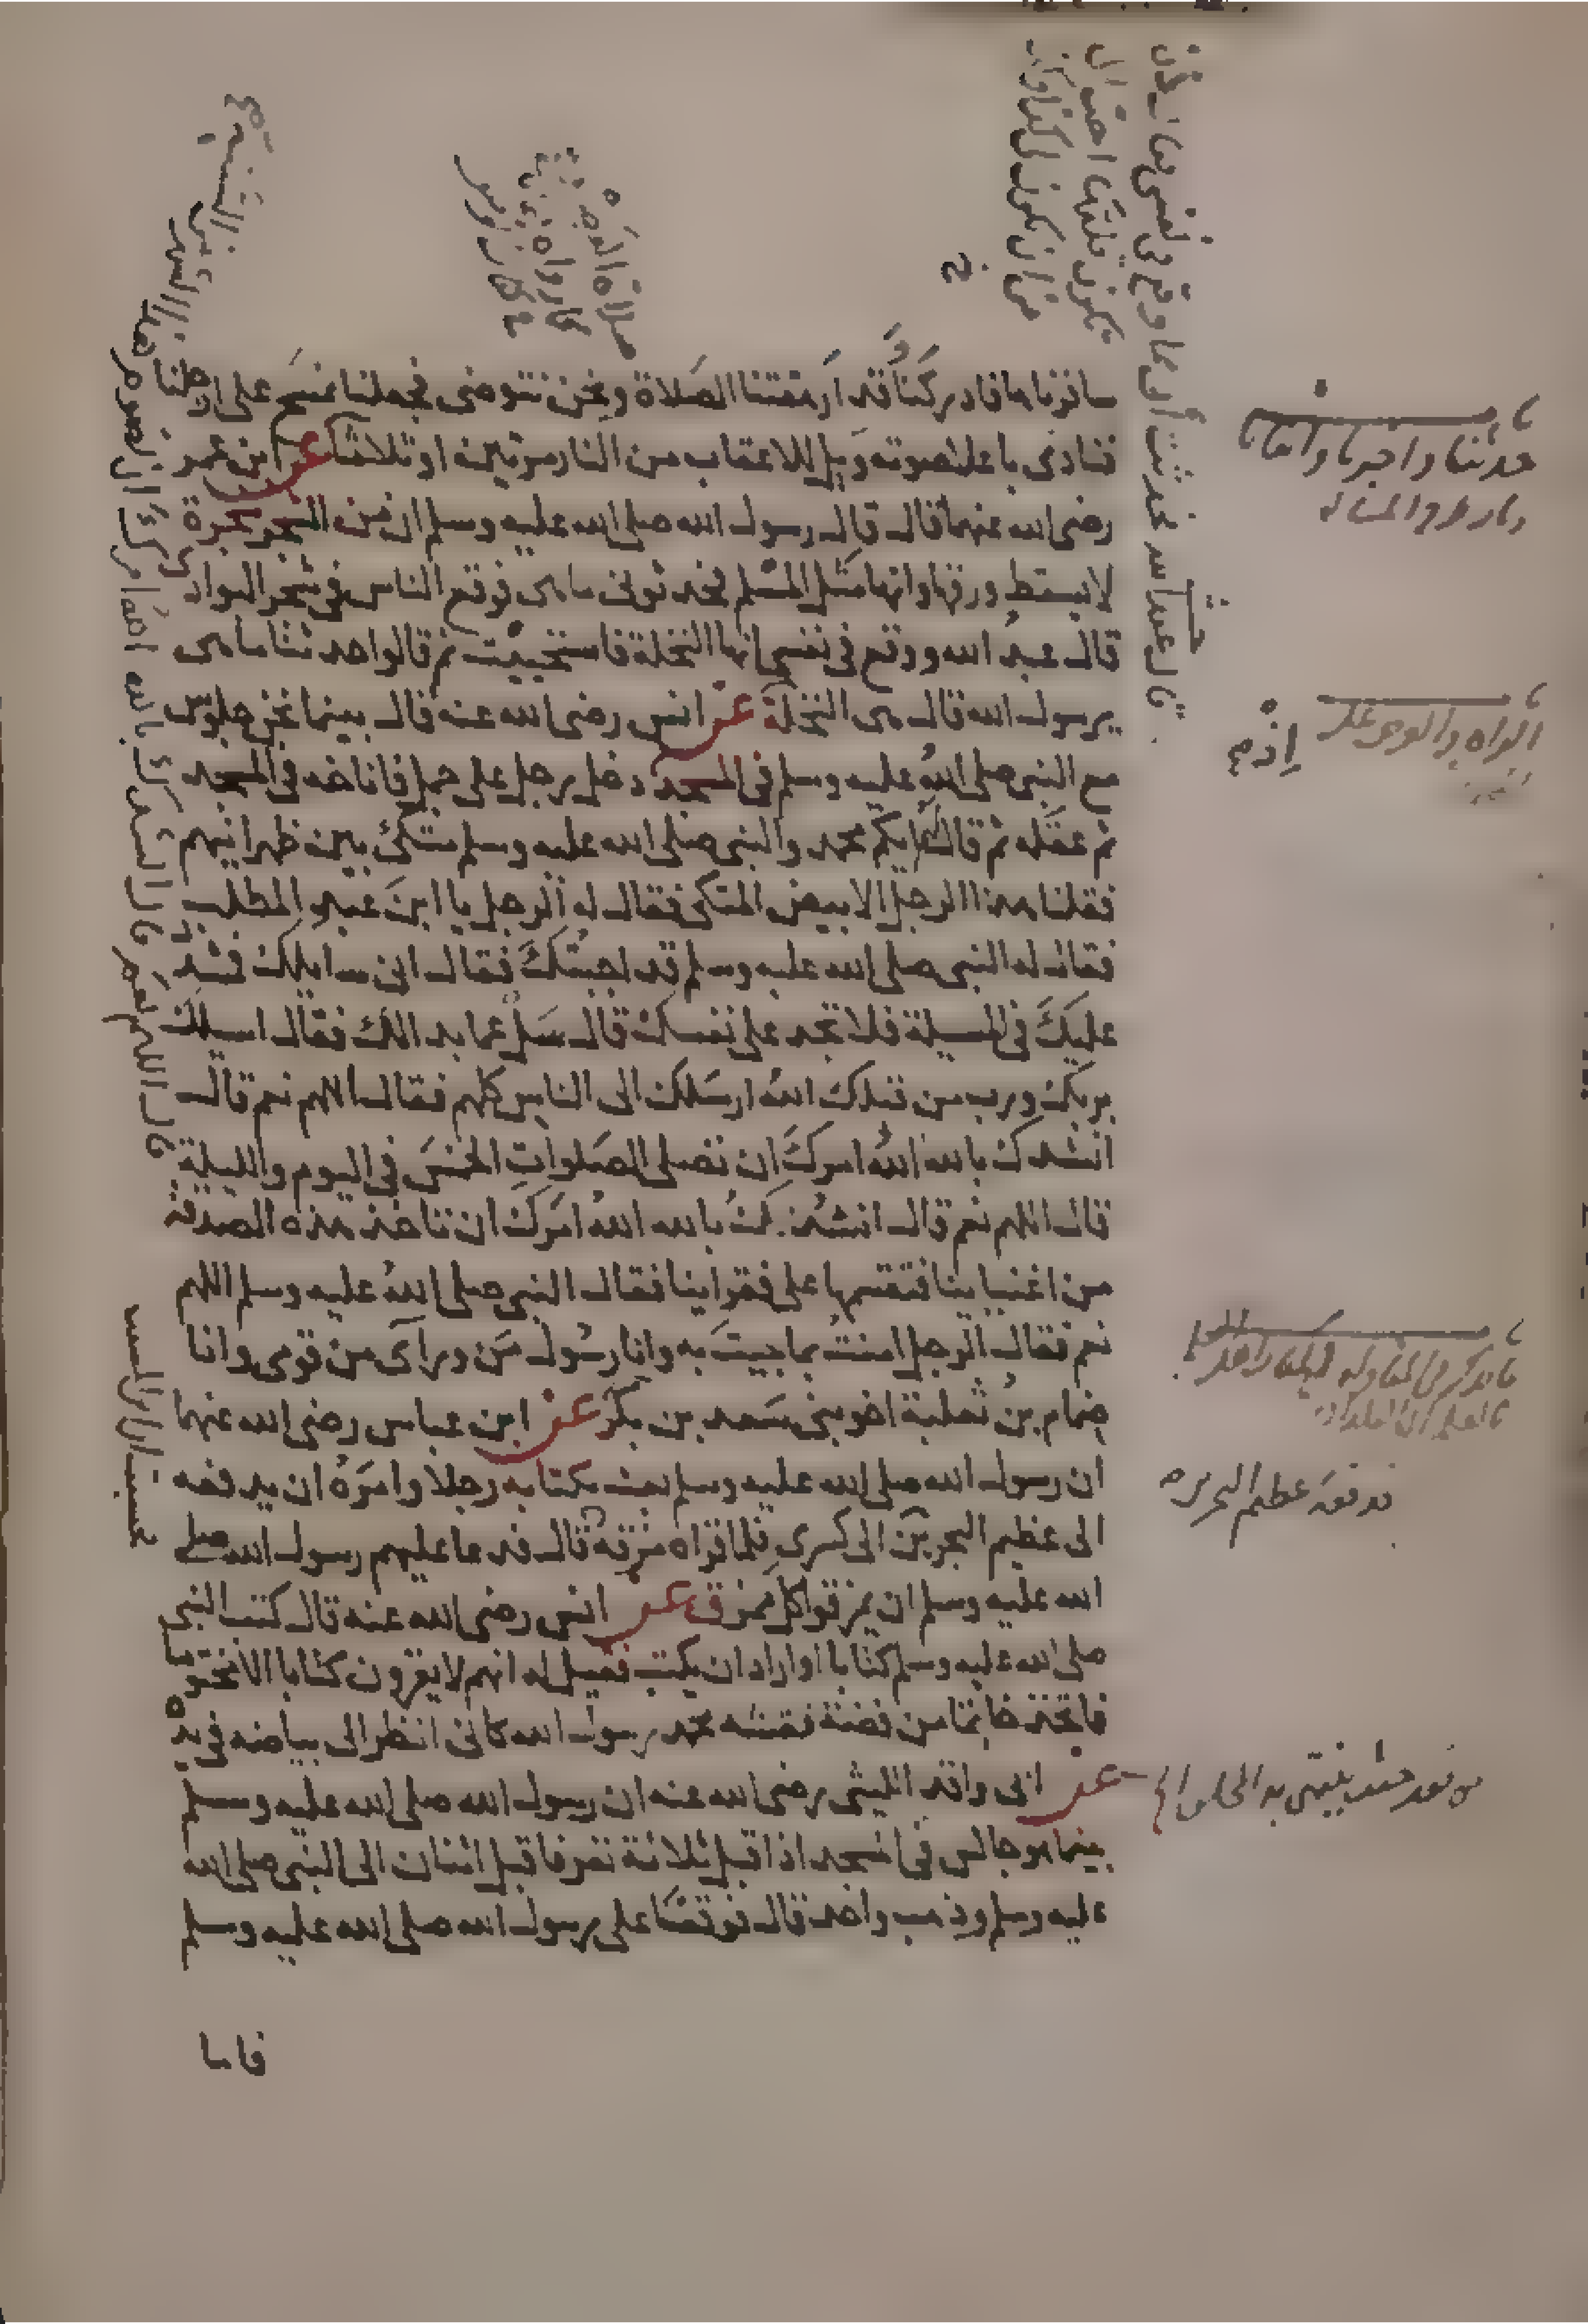 سافرناها فادركنا وقد ارهقتنا الصلاة ونحن نتوضى فجعلنا نمسح على ارجلنا
فنادى باعلا صوته ويل للاعقاب من النار مرتين او ثلاثا عن ابن عمر
رضى الله عنهما قال قال رسول الله صلى الله عليه وسلم ان من الشجر شجرة
لا يسقط ورقها وانها مثل المسلم فحدثونى ما هى فوقع الناس فى شجر البوادى
قال عبد الله ووقع فى نفسى انها النخلة فاستحييت ثم قالوا حدثنا ما هى
يرسول الله قال هى النخلة عن انس رضى الله عنه قال بينما نحن جلوس
مع النبى صلى الله عليه وسلم فى المسجد دخل رجل على جمل فاناخه فى المسجد
ثم عقله ثم قال ايكم محمد والنبى صلى الله عليه وسلم متكئ بين ظهرانيهم
فقلنا هذا الرجل الابيض المتكى فقال له الرجل يا ابن عبد المطلب
فقال له النبى صلى الله عليه وسلم قد اجبتك فقال انى سايلك فمشدد
عليك فى المسيلة فلا تجد على نفسك قال سل عما بدا لك فقال اسيلك
بربك ورب من قبلك الله ارسلك الى الناس كلهم فقال اللهم نعم قال
انشدك بالله الله امرك ان تصلى الصلوات الخمس فى اليوم والليلة
قال اللهم نعم قال انشدك بالله الله امرك ان تاخذ هذه الصدقة
من اغنياينا فتقسمها على فقراينا فقال النبى صلى الله عليه وسلم اللهم
نعم فقال الرجل امنت بما جيت به وانا رسول من وراى من قومى وانا
ضمام بن ثعلبة اخو بنى سعد بن بكر عن ابن عباس رضى الله عنهما
ان رسول الله صلى الله عليه وسلم بعث بكتابه رجلا وامره ان يدفعه
الى عظيم البحرين الى كسرى فلما قراه مزقه قال فدعا عليهم رسول الله صلى
الله عليه وسلم ان يمزقوا كل ممزق عن انس رضى الله عنه قال كتب النبى
صلى الله عليه وسلم كتابا او اراد ان يكتب فقيل له انهم لا يقرون كتابا الا مختوما
فاتخذ خاتما من فضة نقشه محمد رسول الله كانى انظر الى بياضه فى يده
عن ابى واقد الليثى رضى الله عنه ان رسول الله صلى الله عليه وسلم
بينما هو جالس فى المسجد اذ اقبل ثلاثة نفر فاقبل اثنان الى النبى صلى الله
عليه وسلم وذهب واحد قال فوقفا على رسول الله صلى الله عليه وسلم
فاما
حدثنا واخبرنا وانبانا
فدفعه عظيم البحرين
من قعد حيث ينتهى به المجلس
قال اللهم نعم قال انشدك بالله الله امرك ان تصوم هذا الشهر من السنة